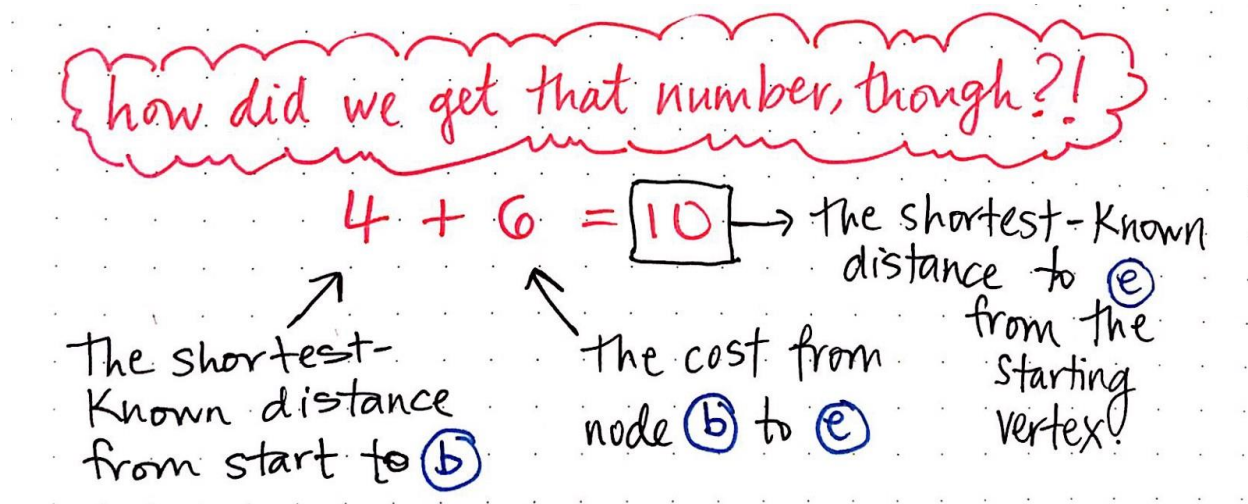 how did we get that number, though?!
4 + 6 = 10 → the shortest-known
distance to e
from the
starting
vertex!
the shortest-
known distance
from start to b
the cost from
node b to e